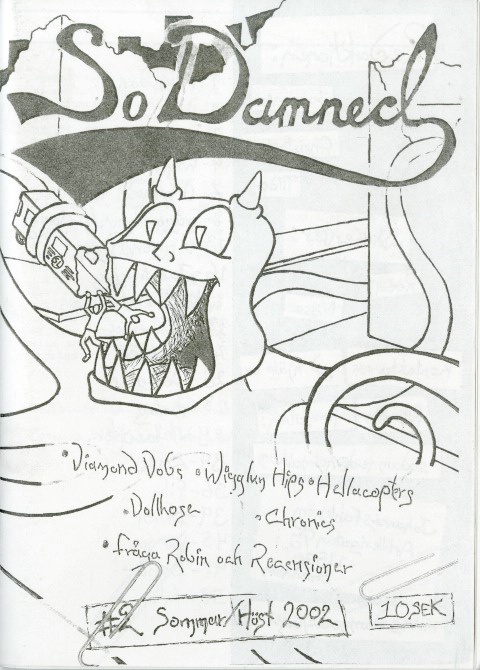 So Damned
•Diamond Dogs •Wigglyn Hips •Hellacopters
•Dollhose •Chronics
•Fråga Robin och Recensioner
#2 Sommar/Höst 2002
10 SEK